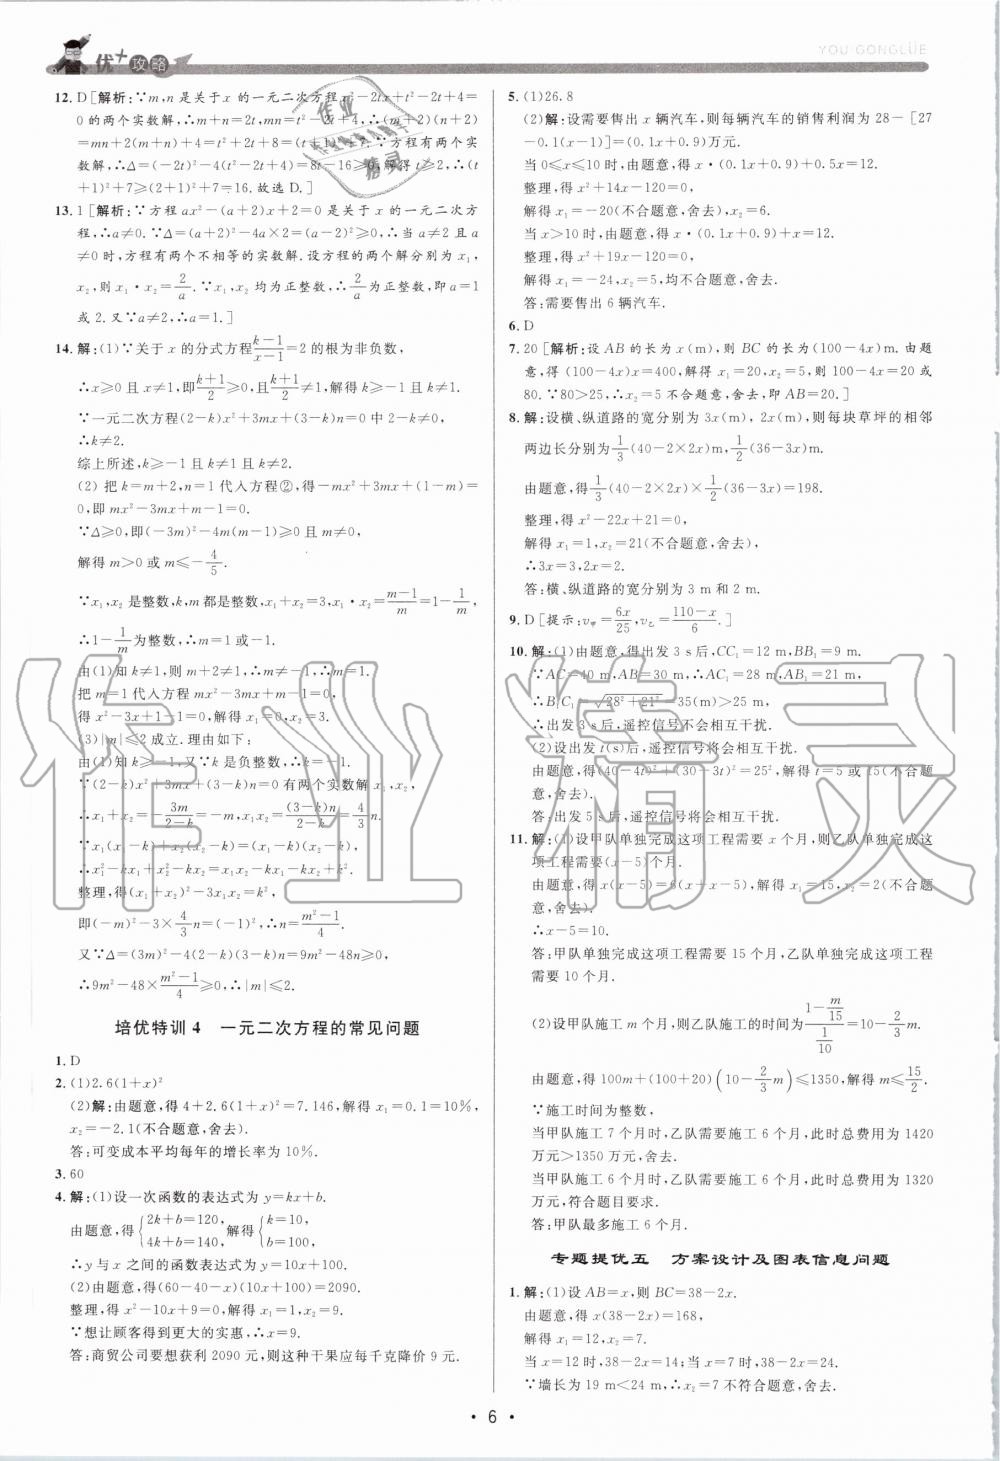 优+攻略
YOU GONGLÜE
12. D[解析:∵m,n是关于x的一元二次方程x²-2tx+t²-2t+4=
0的两个实数解,∴m+n=2t,mn=t²-2t+4,∴(m+2)(n+2)
=mn+2(m+n)+4=t²+2t+8=(t+1)²+7.∵方程有两个实数
解,∴Δ=(-2t)²-4(t²-2t+4)=8t-16≥0,解得t≥2,∴(t
+1)²+7≥(2+1)²+7=16.故选D.]
13. 1[解析:∵方程ax²-(a+2)x+2=0是关于x的一元二次方
程,∴a≠0.∵Δ=(a+2)²-4a×2=(a-2)²≥0,∴当a≠2且a
≠0时,方程有两个不相等的实数解.设方程的两个解分别为x₁,
x₂,则x₁·x₂=2/a.∵x₁,x₂均为正整数,∴2/a为正整数,即a=1
或2.又∵a≠2,∴a=1.]
14. 解:(1)∵关于x的分式方程(k-1)/(x-1)=2的根为非负数,
∴x≥0且x≠1,即(k+1)/2≥0,且(k+1)/2≠1,解得k≥-1且k≠1.
∵一元二次方程(2-k)x²+3mx+(3-k)n=0中2-k≠0,
∴k≠2.
综上所述,k≥-1且k≠1且k≠2.
(2)把k=m+2,n=1代入方程②,得-mx²+3mx+(1-m)=
0,即mx²-3mx+m-1=0.
∵Δ≥0,即(-3m)²-4m(m-1)≥0且m≠0,
解得m>0或m≤-4/5.
∵x₁,x₂是整数,k,m都是整数,x₁+x₂=3,x₁·x₂=(m-1)/m=1-1/m,
∴1-1/m为整数,∴m=1或-1.
由(1)知k≠1,则m+2≠1,∴m≠-1,∴m=1.
把m=1代入方程mx²-3mx+m-1=0,
得x²-3x+1-1=0,解得x₁=0,x₂=3.
(3)|m|≤2成立.理由如下:
由(1)知k≥-1,又∵k是负整数,∴k=-1.
∵(2-k)x²+3mx+(3-k)n=0有两个实数解x₁,x₂,
∴x₁+x₂=-3m/(2-k)=-m,x₁x₂=(3-k)n/(2-k)=4/3n.
∵x₁(x₁-k)+x₂(x₂-k)=(x₁-k)(x₂-k),
∴x₁²-kx₁+x₂²-kx₂=x₁x₂-kx₁-kx₂+k²,
整理,得(x₁+x₂)²-3x₁x₂=k²,
即(-m)²-3×4/3n=(-1)²,∴n=(m²-1)/4.
又∵Δ=(3m)²-4(2-k)(3-k)n=9m²-48n≥0,
∴9m²-48×(m²-1)/4≥0,∴|m|≤2.
培优特训4 一元二次方程的常见问题
1. D
2. (1)2.6(1+x)²
(2)解:由题意,得4+2.6(1+x)²=7.146,解得x₁=0.1=10%,
x₂=-2.1(不合题意,舍去).
答:可变成本平均每年的增长率为10%.
3. 60
4. 解:(1)设一次函数的表达式为y=kx+b.
由题意,得{2k+b=120, 4k+b=140, 解得{k=10, b=100.
∴y与x之间的函数表达式为y=10x+100.
(2)由题意,得(60-40-x)(10x+100)=2090.
整理,得x²-10x+9=0,解得x₁=1,x₂=9.
∵想让顾客得到更大的实惠,∴x=9.
答:商贸公司要想获利2090元,则这种干果应每千克降价9元.
5. (1)26.8
(2)解:设需要售出x辆汽车,则每辆汽车的销售利润为28-[27
-0.1(x-1)]=(0.1x+0.9)万元.
当0≤x≤10时,由题意,得x·(0.1x+0.9)+0.5x=12.
整理,得x²+14x-120=0,
解得x₁=-20(不合题意,舍去),x₂=6.
当x>10时,由题意,得x·(0.1x+0.9)+x=12.
整理,得x²+19x-120=0,
解得x₁=-24,x₂=5,均不合题意,舍去.
答:需要售出6辆汽车.
6. D
7. 20[解析:设AB的长为x(m),则BC的长为(100-4x)m.由题
意,得(100-4x)x=400,解得x₁=20,x₂=5,则100-4x=20或
80.∵80>25,∴x₂=5不合题意,舍去,即AB=20.]
8. 解:设横、纵道路的宽分别为3x(m),2x(m),则每块草坪的相邻
两边长分别为1/3(40-2×2x)m,1/2(36-3x)m.
由题意,得1/3(40-2×2x)×1/2(36-3x)=198.
整理,得x²-22x+21=0,
解得x₁=1,x₂=21(不合题意,舍去),
∴3x=3,2x=2.
答:横、纵道路的宽分别为3m和2m.
9. D[提示:v甲=6x/25,v乙=(110-x)/6.]
10. 解:(1)由题意,得出发3s后,CC₁=12m,BB₁=9m.
∵AC=40m,AB=30m,∴AC₁=28m,AB₁=21m,
∴B₁C₁=√(28²+21²)=35(m)>25m,
∴出发3s后,遥控信号不会相互干扰.
(2)设出发t(s)后,遥控信号将会相互干扰.
由题意,得(40-4t)²+(30-3t)²=25²,解得t=5或15(不合题
意,舍去).
答:出发5s后,遥控信号将会相互干扰.
11. 解:(1)设甲队单独完成这项工程需要x个月,则乙队单独完成这
项工程需要(x-5)个月.
由题意,得x(x-5)=6(x+x-5),解得x₁=15,x₂=2(不合题
意,舍去).
∴x-5=10.
答:甲队单独完成这项工程需要15个月,乙队单独完成这项工程
需要10个月.
(2)设甲队施工m个月,则乙队施工的时间为(1-m/15)/(1/10)=10-2/3m.
由题意,得100m+(100+20)(10-2/3m)≤1350,解得m≤15/2.
∵施工时间为整数,
当甲队施工7个月时,乙队需要施工6个月,此时总费用为1420
万元>1350万元,舍去.
当甲队施工6个月时,乙队需要施工6个月,此时总费用为1320
万元,符合题目要求.
答:甲队最多施工6个月.
专题提优五 方案设计及图表信息问题
1. 解:(1)设AB=x,则BC=38-2x.
由题意,得x(38-2x)=168,
解得x₁=12,x₂=7.
当x=12时,38-2x=14;当x=7时,38-2x=24.
∵墙长为19m<24m,∴x₂=7不符合题意,舍去.
· 6 ·
作业精灵